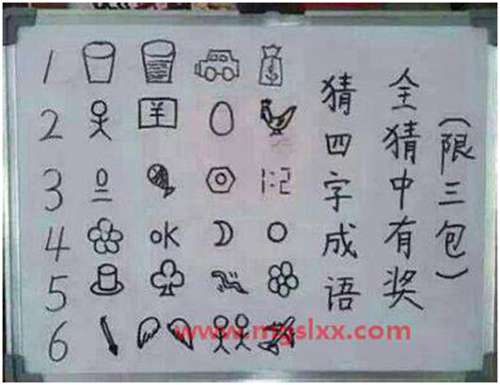 (限三包)
全猜中有奖
猜四字成语
1 $
2 羊
3 1:2
4 OK
5
6
www.mgslxx.com